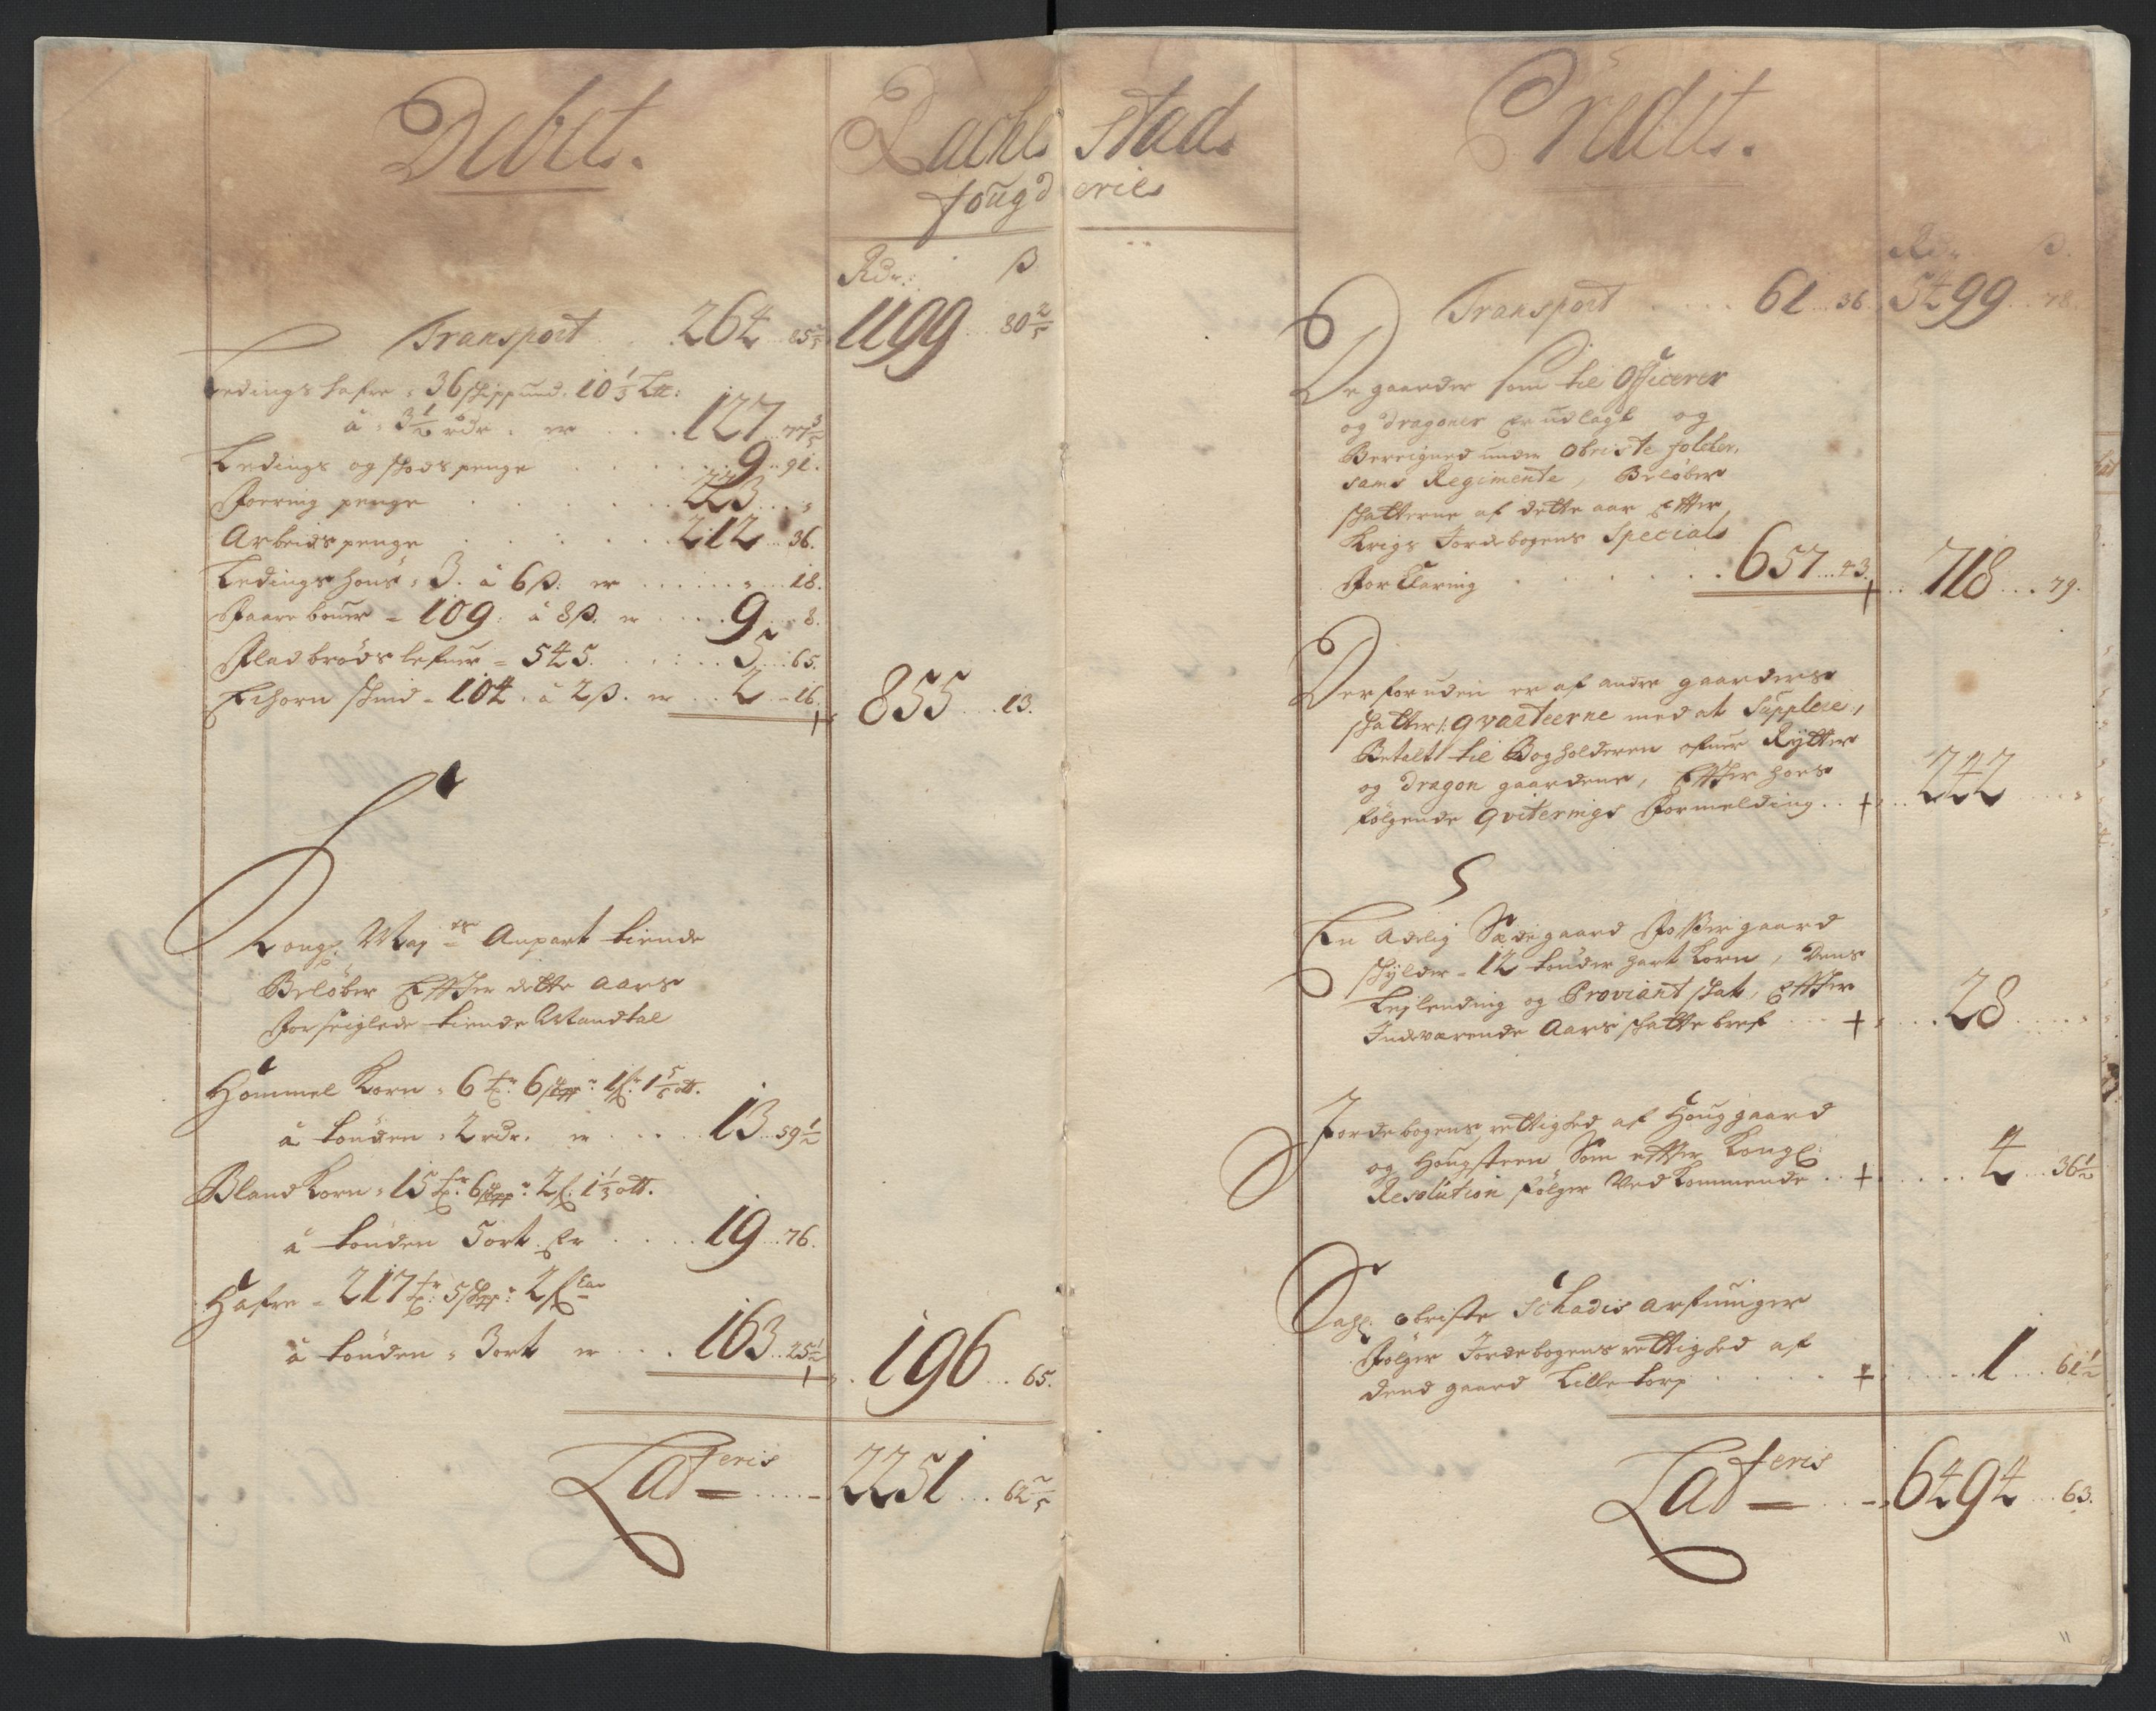 Debet.
Rachestads
fougderies
Rdr: ß
Transport 264 .. 85 2/5 1199 .. 80 2/5
Ledings hafre : 36 skippund : 10 1/3 Lti:
á : 3 1/2 rdr. er .... 127 .. 77 3/5
Ledings og skods penge .... 9 .. 91.
Foering penge .... 223 .. "
Arbeids penge .... 212 .. 36.
Ledings höns : 3. á 6 ß. er .... " .. 18.
Faare bouer - 109 : á 8 ß. er .... 9 .. 8.
Fladbröds lefuer = 545. .... 5 .. 65.
Echorn skind - 104. á 2 ß. er .... 2 - 16. 855 .. 13.
Kongl. May ts Anpart tiende
Belöber Effter dette aars
Forseiglede tiende Mandtal
Hommel Korn : 6 tr: 6 skpr: 1 f: 1 5/6 ott.
á tönden : 2 rdr. er .... 13 .. 59 1/2
Bland Korn : 15 tr: 6 skpr: 2 f. 1 1/3 ott.
á tönden 5 ort. Er .... 19 .. 76.
Hafre - 217 tr: 5 skpr: 2 f
á tönden : 3 ort er ... 163 .. 25 1/2 196 ... 65.
Lateris .... 2251 ... 62 2/5
Credit.
Rdr ß.
Transport .... 61 .. 36. 5499 .. 78.
De gaarder som til Officerer
og Dragoner Er udlagt og
Bereigned under Obriste Folcker,
sams Regimente, Belöber
skatterne af dette aar Efter
Krigs Jordebogens Specials
Forklaring .... 657 ... 43. 718 ... 79.
Derforuden er af andre gaarders
skatter /: qvarteerne med at Supplere,
Betalt til Bogholderen ofuer Rytter
og Dragon gaardene, Effter hoes
følgende qviterings Formelding .. + 242 .... "
En Adelig Sædegaard Fosser gaard
skylder - 12 tönder hart Korn, dens
Leylending og Proviant skat, Effter
Indeværende Aars skattebref ... + .... 28 .... "
Jordebogens rettighed af Houg gaard
og Hougsteen Som effter Kongl:
Resolution følger Vedkommende .. + .... 4 ... 36 1/2
Sahl. obriste Schadis arfuinger
Følger Jordebogens rettighed af
dend gaard Lilletorp .... + .... 1 ... 61 1/2
Lateris ... 6494 ... 63.